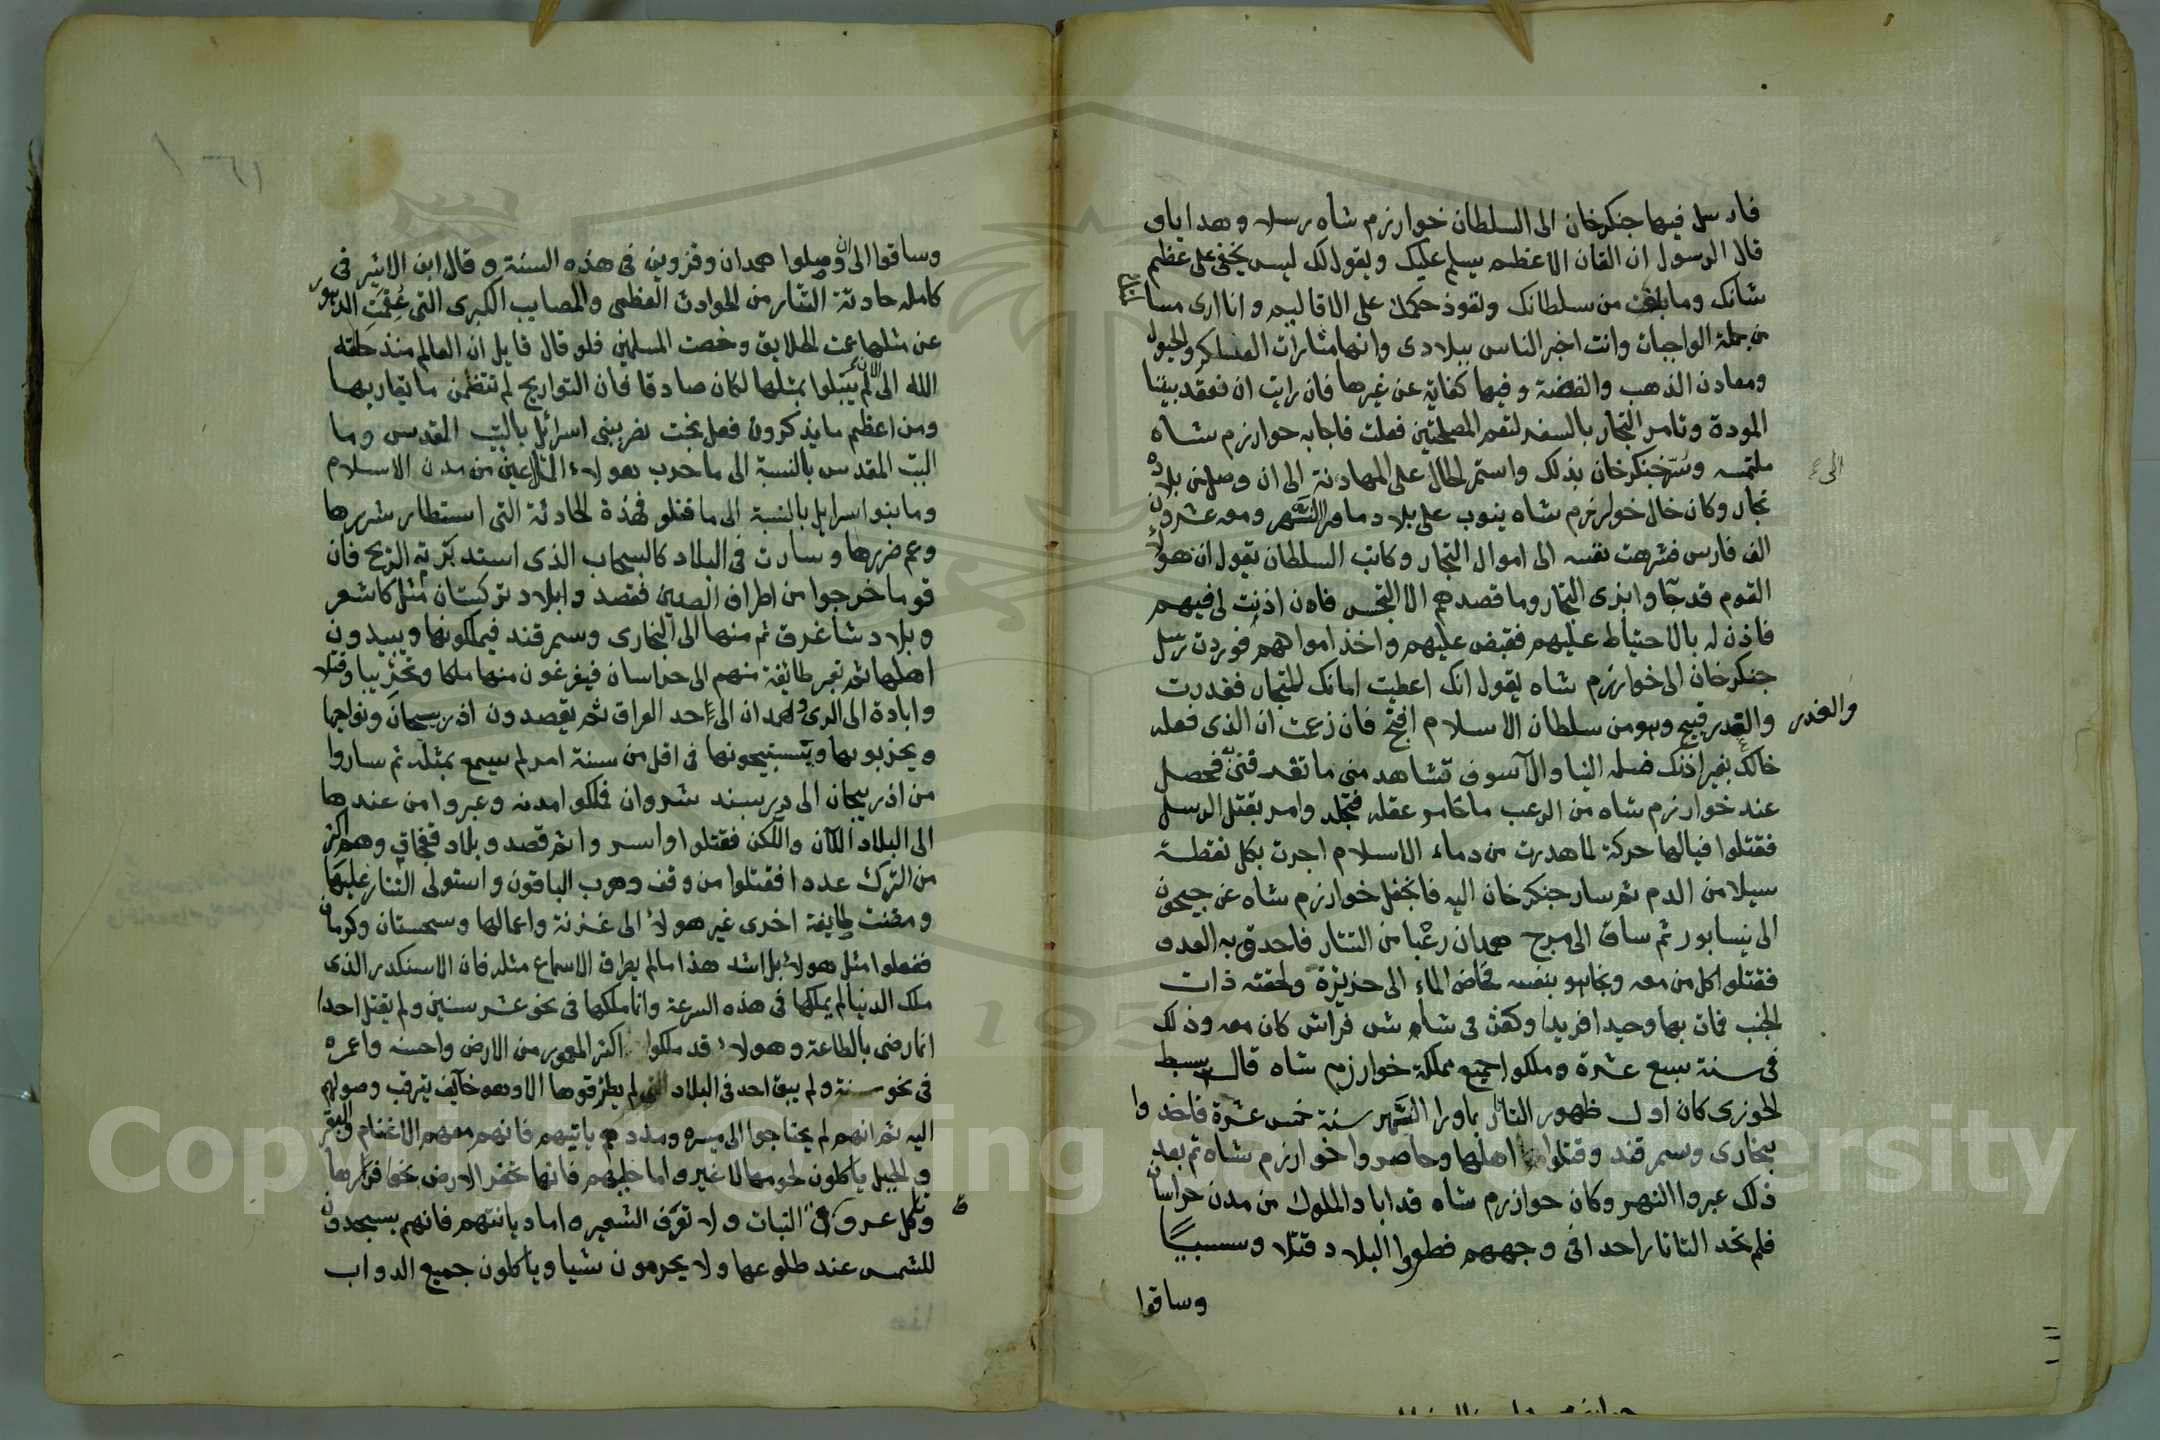 فارسل فيها جنكزخان الى السلطان خوارزم شاه رسلا وهدايا و
قال الرسول ان القان الاعظم يسلم عليك ويقول لك ليس يخفى على عظم
شانك وما بلغت من سلطانك ونفوذ حكمك على الاقاليم وانا ارى مسا
من جملة الواجبات وانت اخبر الناس ببلادى وانها مثارات العساكر والخيول
ومعادن الذهب والفضة وفيها كفاية عن غيرها فان رايت ان نعقد بيننا
المودة وتامر التجار بالسفر لتعم المصلحتين فعلت فاجابه خوارزم شاه
ملتمسه وسر جنكزخان بذلك واستمر الحال على المهادنة الى ان وصل من بلاده
الى
تجار وكان خال خوارزم شاه ينوب على بلاد ماورا النهر ومعه عشرون
الف فارس فشرهت نفسه الى اموال التجار وكاتب السلطان يقول ان هولاء
القوم قد جآوا بزى التجار وما قصدهم الا التجسس فان اذنت لى فيهم
فاذن له بالاحتياط عليهم فقبض عليهم واخذ اموالهم فوردت رسل
جنكزخان الى خوارزم شاه يقول انك اعطيت امانك للتجار فغدرت
والغدر قبيح وهو من سلطان الاسلام اقبح فان زعمت ان الذى فعله
والغدر
خالك بغير اذنك فسلمه الينا والا سوف تشاهد منى ما تعرفنى فحصل
عند خوارزم شاه من الرعب ما خامر عقله فتجلد وامر بقتل الرسل
فقتلوا فيالها حركة لما هدرت من دماء الاسلام اجرت بكل نقطة
سيلا من الدم ثم سار جنكزخان اليه فانجفل خوارزم شاه عن جيحون
الى نيسابور ثم ساق الى مرج همدان رعبا من التتار فاحدق به العدو
فقتلوا كل من معه ونجا هو بنفسه فخاض الماء الى جزيرة ولحقته ذات
الجنب فمات بها وحيدا فريدا وكفن فى شاش فراش كان معه وذلك
فى سنة سبع عشرة وملكوا جميع مملكة خوارزم شاه قال سبط
الجوزى كان اول ظهور التتار بماورا النهر سنة خمس عشرة فاخذوا
بخارى وسمرقند وقتلوا اهلها وحاصروا خوارزم شاه ثم بعد
ذلك عبروا النهر وكان خوارزم شاه قد اباد الملوك من مدن خراسان
فلم تجد التاتار احدا فى وجههم فطووا البلاد قتلا وسبيا
وساقوا
وساقوا الى ان وصلوا همدان وقزوين فى هذه السنة وقال ابن الاثير فى
كامله حادثة التتار من الحوادث العظمى والمصايب الكبرى التى عقمت الدهور
عن مثلها عمت الخلايق وخصت المسلمين فلو قال قايل ان العالم منذ خلقه
الله الى الان لم يبتلوا بمثلها لكان صادقا فان التواريخ لم تتضمن ما يقاربها
ومن اعظم ما يذكرون فعل بخت نصر ببنى اسرائل بالبيت المقدس وما
البيت المقدس بالنسبة الى ما خرب هولاء الملاعين من مدن الاسلام
وما بنوا اسرايل بالنسبة الى ما قتلو فهذة الحادثة التى استطار شررها
وعم ضررها وسارت فى البلاد كالسحاب الذى استدبرته الريح فان
قوما خرجوا من اطراف الصين فقصدوا بلاد تركستان مثل كاشغر
وبلاد شاغرق ثم منها الى البخارى وسمرقند فيملكونها ويبيدون
اهلها ثم تعبر طائفة منهم الى خراسان فيفرغون منها ملكا وتخريبا وقتلا
وابادة الى الرى وهمدان الى حد العراق ثم يقصدون اذربيجان ونواحيها
ويخربونها ويستبيحونها فى اقل من سنة امر لم يسمع بمثله ثم ساروا
من اذربيجان الى دربند شروان فملكوا مدنه وعبروا من عندها
الى البلاد اللان واللكن فقتلوا واسروا ثم قصدوا بلاد قفجاق وهم اكثر
من الترك عددا فقتلوا من وقف وهرب الباقون واستولى التتار عليها
ومضت طايفة اخرى غير هولاء الى غزنة واعمالها وسجستان وكرمان
ففعلوا مثل هولاء بل اشد هذا مالم يطرق الاسماع مثله فان الاسكندر الذى
ملك الدنيا لم يملكها فى هذه السرعة وانما ملكها فى نحو عشر سنين ولم يقتل احدا
انما رضى بالطاعة وهولاء قد ملكوا اكثر المعمور من الارض واحسنه واعمره
فى نحو سنة ولم يبق احد فى البلاد التى لم يطرقوها الا وهو خآيف يترقب وصولهم
اليه ثم انهم لم يحتاجوا الى ميره ومدد هم ياتيهم فانهم معهم الاغنام والبقر
والخيل ياكلون لحومها لا غير واما خيلهم فانها تحفر الارض بحوافرها
وتاكل عروق النبات ولا تعرف الشعير واما ديانتهم فانهم يسجدون
للشمس عند طلوعها ولا يحرمون شيا وياكلون جميع الدواب
Copyright © King Saud University
1957